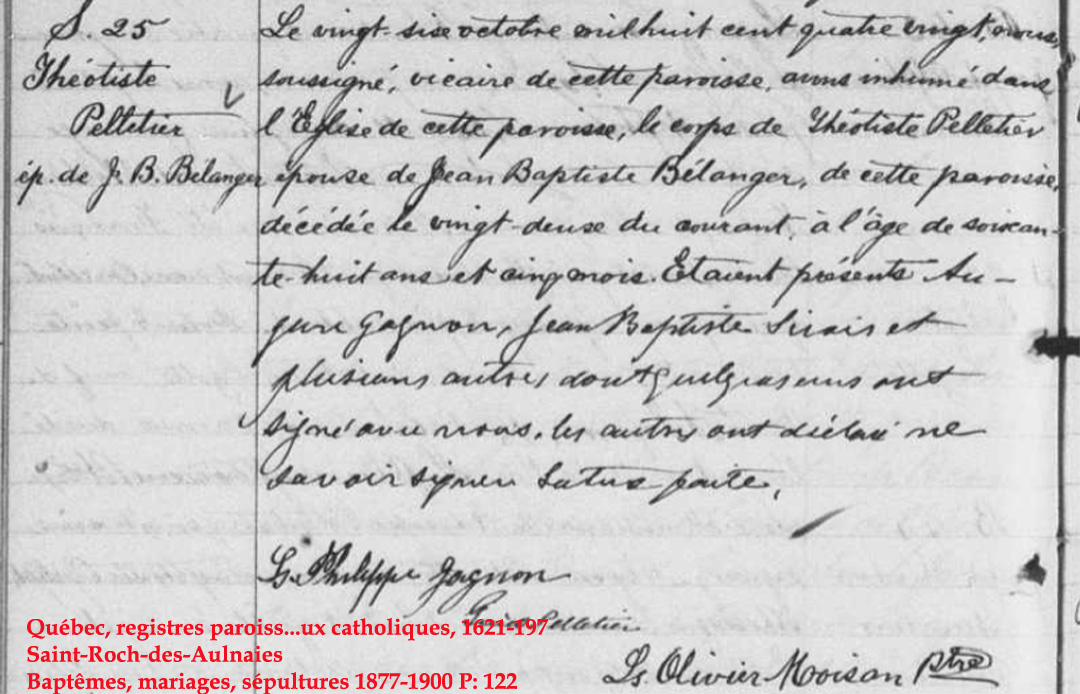 S. 25
Théotiste
Pelletier
ép. de J. B. Bélanger
Le vingt-six octobre mil huit cent quatre vingt, nous,
soussigné, vicaire de cette paroisse, avons inhumé dans
l'Eglise de cette paroisse, le corps de Théotiste Pelletier
épouse de Jean Baptiste Bélanger, de cette paroisse,
décédée le vingt-deux du courant, à l'âge de soixan-
te-huit ans et cinq mois. Etaient présents Au-
Gagnon, Jean Baptiste Sirois et
plusieurs autres dont quelques uns ont
signé avec nous, les autres ont déclaré ne
savoir signer lecture faite.
Ls. Philippe Gagnon
Pelletier
Ls. Olivier Moisan Ptre
Québec, registres paroiss...ux catholiques, 1621-197
Saint-Roch-des-Aulnaies
Baptêmes, mariages, sépultures 1877-1900 P: 122